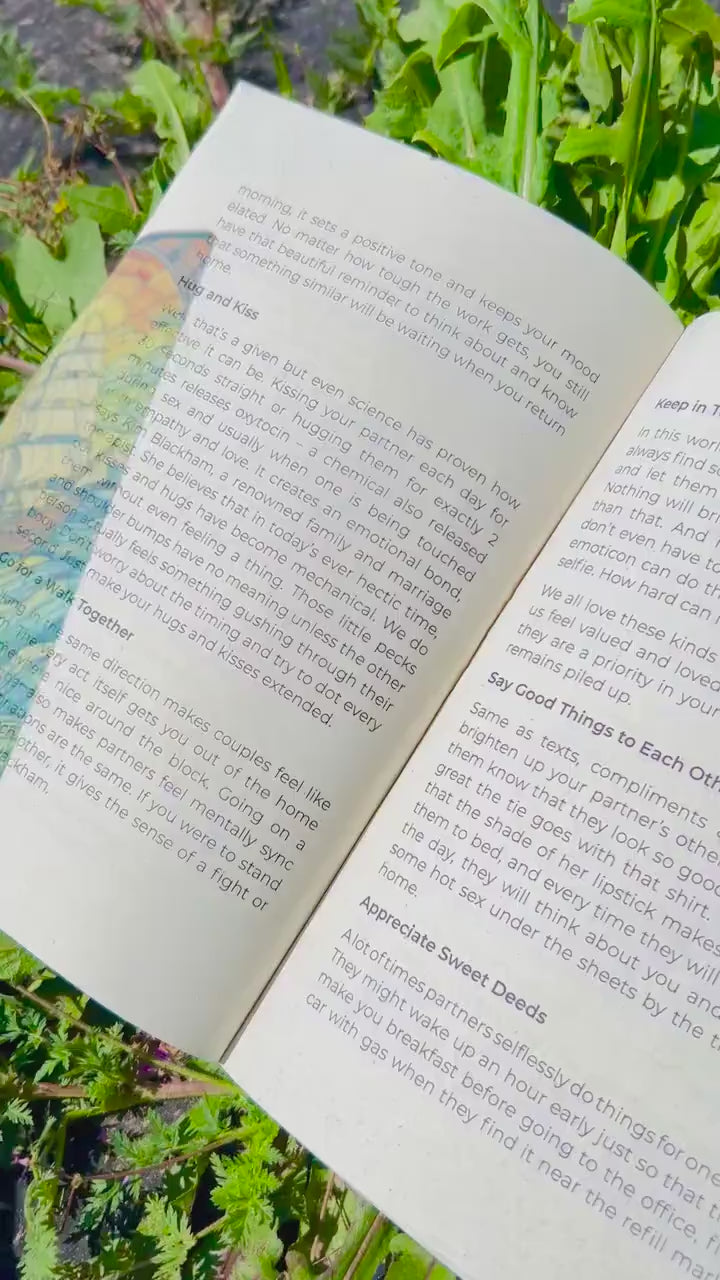 morning, it sets a positive tone and keeps your mood
elated. No matter how tough the work gets, you still
have that beautiful reminder to think about and know
that something similar will be waiting when you return
home.
Hug and Kiss
that's a given but even science has proven how
effective it can be. Kissing your partner each day for
seconds straight or hugging them for exactly 2
minutes releases oxytocin – a chemical also released
during sex and usually when one is being touched
empathy and love. It creates an emotional bond,
says Kim Blackham, a renowned family and marriage
therapist. She believes that in today's ever hectic time,
kisses and hugs have become mechanical. We do
them without even feeling a thing. Those little pecks
and shoulder bumps have no meaning unless the other
person actually feels something gushing through their
body. Don't worry about the timing and try to dot every
second. Just make your hugs and kisses extended.
Go for a Walk Together
same direction makes couples feel like
very act itself gets you out of the home
nice around the block. Going on a
also makes partners feel mentally sync
are the same. If you were to stand
other, it gives the sense of a fight or
Keep in
In this
always find
and let them
Nothing will
than that. And
don't even have to
emoticon can do
selfie. How hard can
We all love these kinds
us feel valued and loved
they are a priority in your
remains piled up.
Say Good Things to Each
Same as texts, compliments
brighten up your partner's
them know that they look so good
great the tie goes with that shirt.
that the shade of her lipstick makes
them to bed, and every time they will
the day, they will think about you and
some hot sex under the sheets by the
home.
Appreciate Sweet Deeds
A lot of times partners selflessly do things for
They might wake up an hour early just so that
make you breakfast before going to the office,
car with gas when they find it near the refill